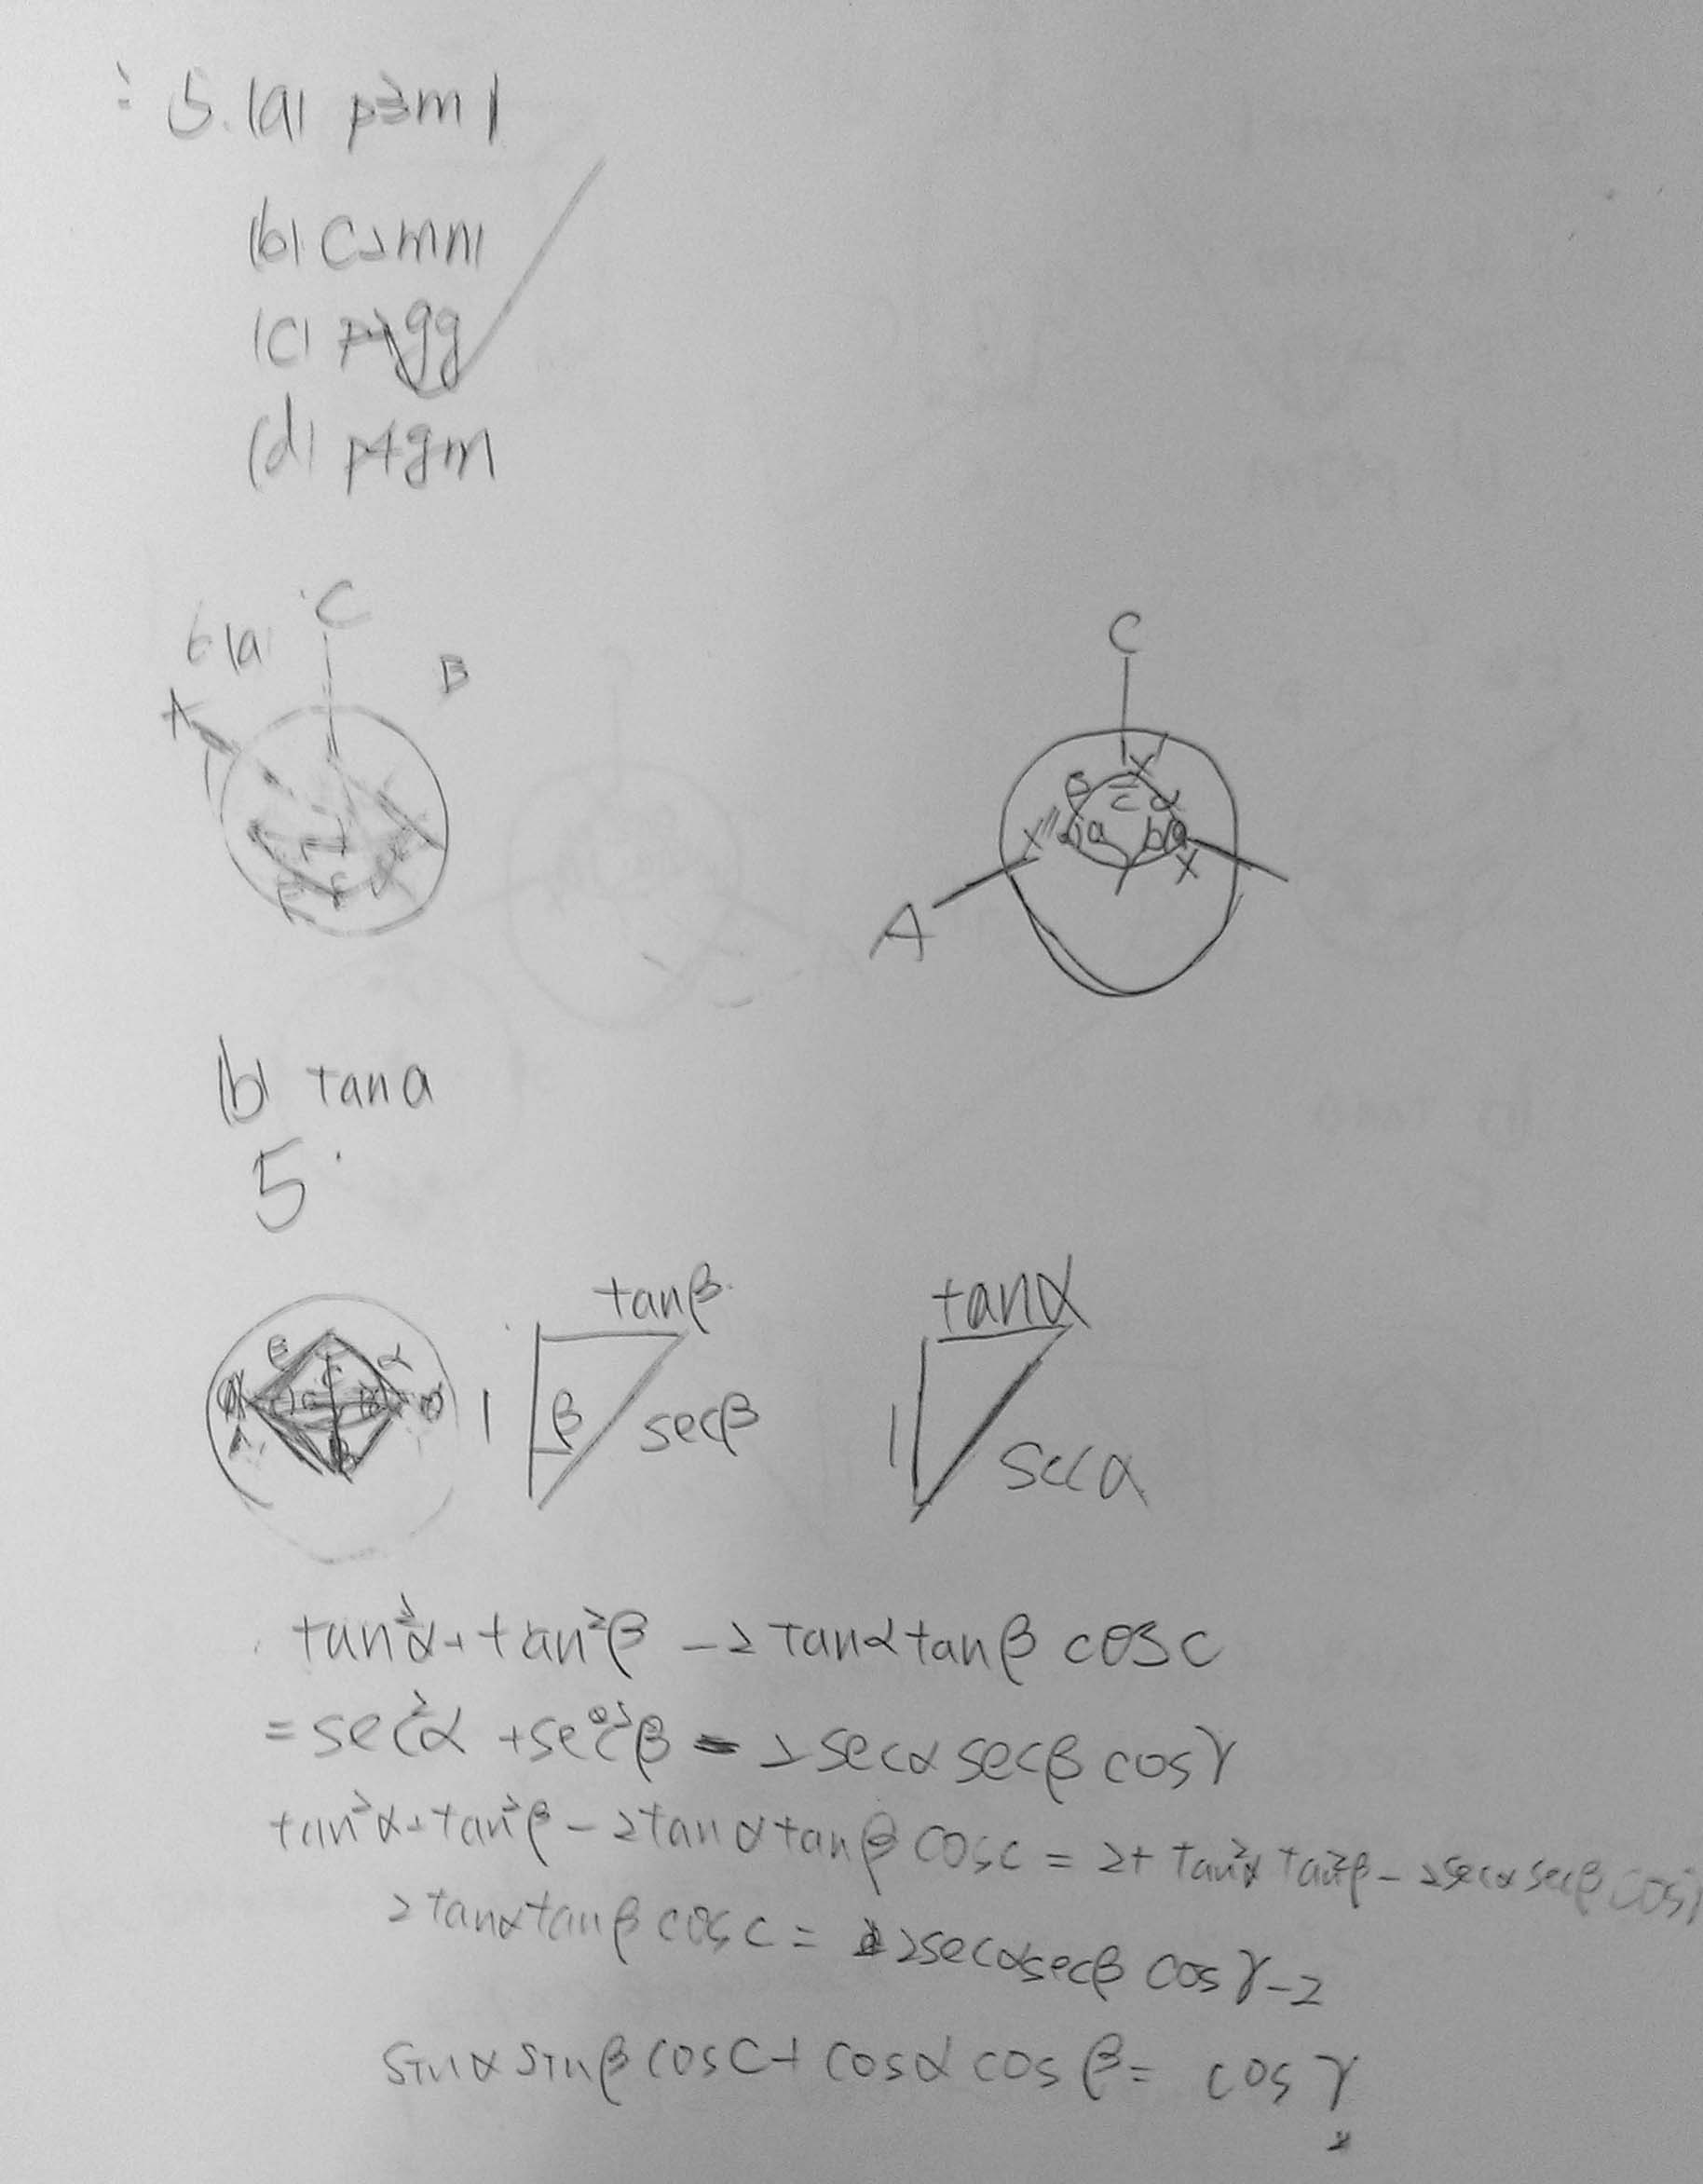 5. (a) p3m1
(b) c2mm
(c) p2gg
(d) p4gm
6 (a) C
A B
C
β c α
a b
A
(b) tan a
5
tanβ tanα
β α
1 β secβ 1 secα
tan²α + tan²β - 2 tanα tanβ cos c
= sec²α + sec²β - 2 secα secβ cosγ
tan²α + tan²β - 2tanα tanβ cosc = 2 + tan²α tan²β - 2secα secβ cosγ
2tanαtanβ cosc = 2secαsecβ cosγ - 2
sinα sinβ cosc + cosα cosβ = cosγ